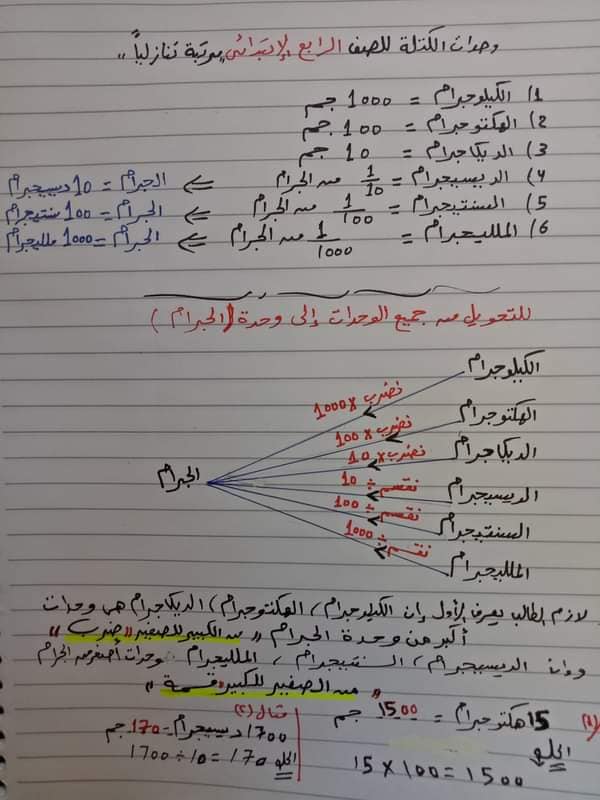 وحدات الكتلة للصف الرابع الإبتدائي مرتبة تنازلياً ،،
1) الكيلوجرام = 1000 جم
2) الهكتوجرام = 100 جم
3) الديكاجرام = 10 جم
4) الديسيجرام = 1/10 من الجرام ⇐ الجرام = 10 ديسيجرام
5) السنتيجرام = 1/100 من الجرام ⇐ الجرام = 100 سنتيجرام
6) الملليجرام = 1/1000 من الجرام ⇐ الجرام = 1000 ملليجرام
للتحويل من جميع الوحدات إلى وحدة (الجرام)
الكيلوجرام نضرب × 1000
الهكتوجرام نضرب × 100
الديكاجرام نضرب × 10
الجرام
الديسيجرام نقسم ÷ 10
السنتيجرام نقسم ÷ 100
الملليجرام نقسم ÷ 1000
لازم الطالب يعرف الأول إن الكيلوجرام، الهكتوجرام، الديكاجرام هي وحدات
أكبر من وحدة الجرام " من الكبير للصغير "ضرب"
وإن الديسيجرام، السنتيجرام، الملليجرام وحدات أصغر من الجرام
" من الصغير للكبير "قسمة"
(1) 15 هكتوجرام = 1500 جم
الحل
15 × 100 = 1500
مثال (2)
1700 ديسيجرام = 170 جم
الحل 1700 ÷ 10 = 170